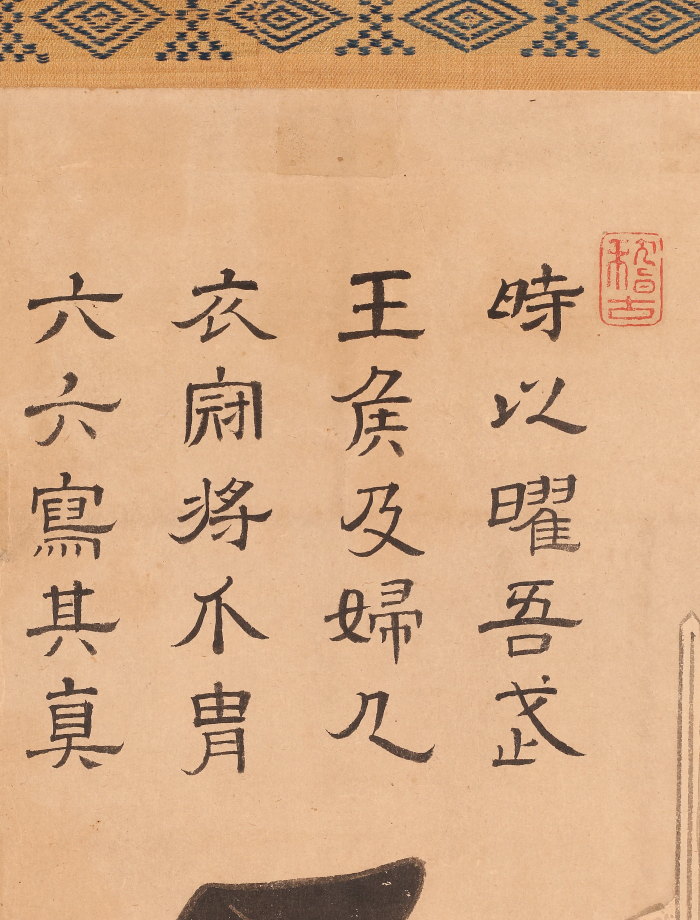 稽古
時以曜吾武
王侯及婦人
衣冠將介冑
六六寫其真